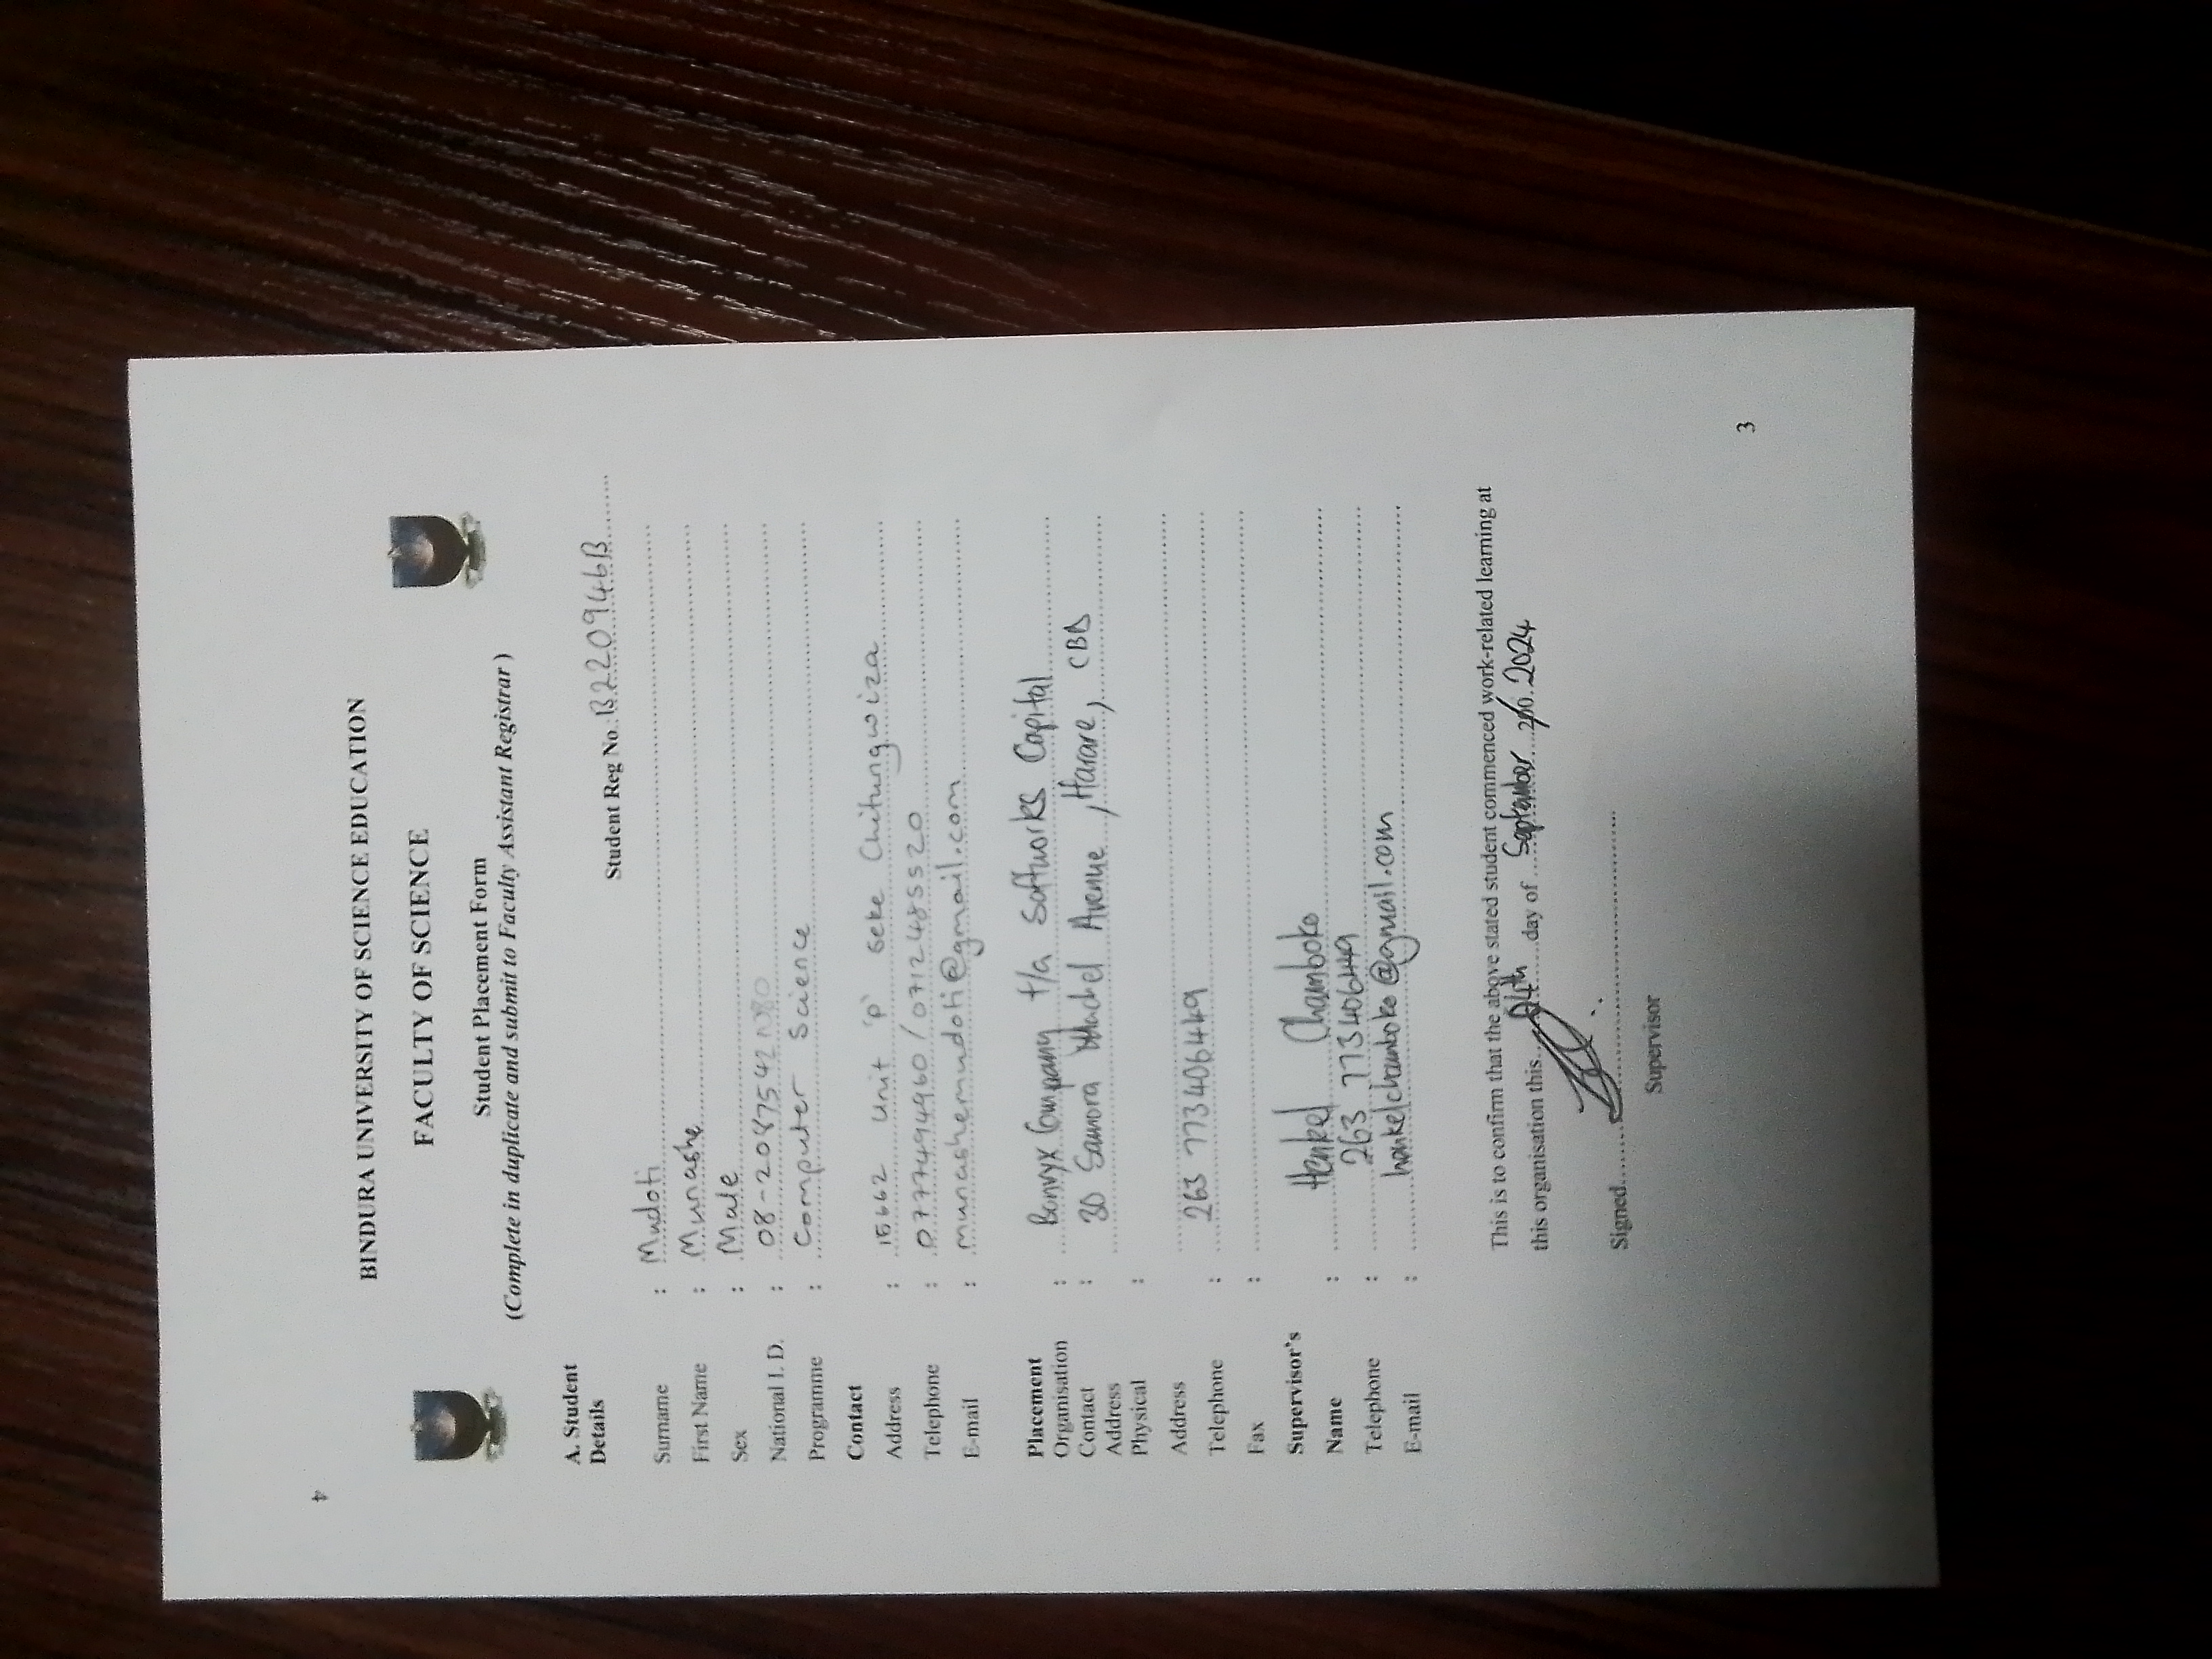 4
BINDURA UNIVERSITY OF SCIENCE EDUCATION
FACULTY OF SCIENCE
Student Placement Form
(Complete in duplicate and submit to Faculty Assistant Registrar )
A. Student
Details
Student Reg No.: B220946B
Surname : Mudoti
First Name : Munashe
Sex : Male
National I. D. : 08-2087542N80
Programme : Computer Science
Contact
Address : 15662 Unit 'P' Seke Chitungwiza
Telephone : 0777494960 / 0712485520
E-mail : munashemudoti@gmail.com
Placement
Organisation : Bonvyx Company t/a Softworks Capital
Contact : 30 Samora Machel Avenue, Harare, CBD
Address
Physical :
Address
Telephone : 263 773406449
Fax :
Supervisor's
Name : Henkel Chamboko
Telephone : 263 773406449
E-mail : henkelchamboko@gmail.com
This is to confirm that the above stated student commenced work-related learning at
this organisation this 04th day of September 2024
Signed
Supervisor
3